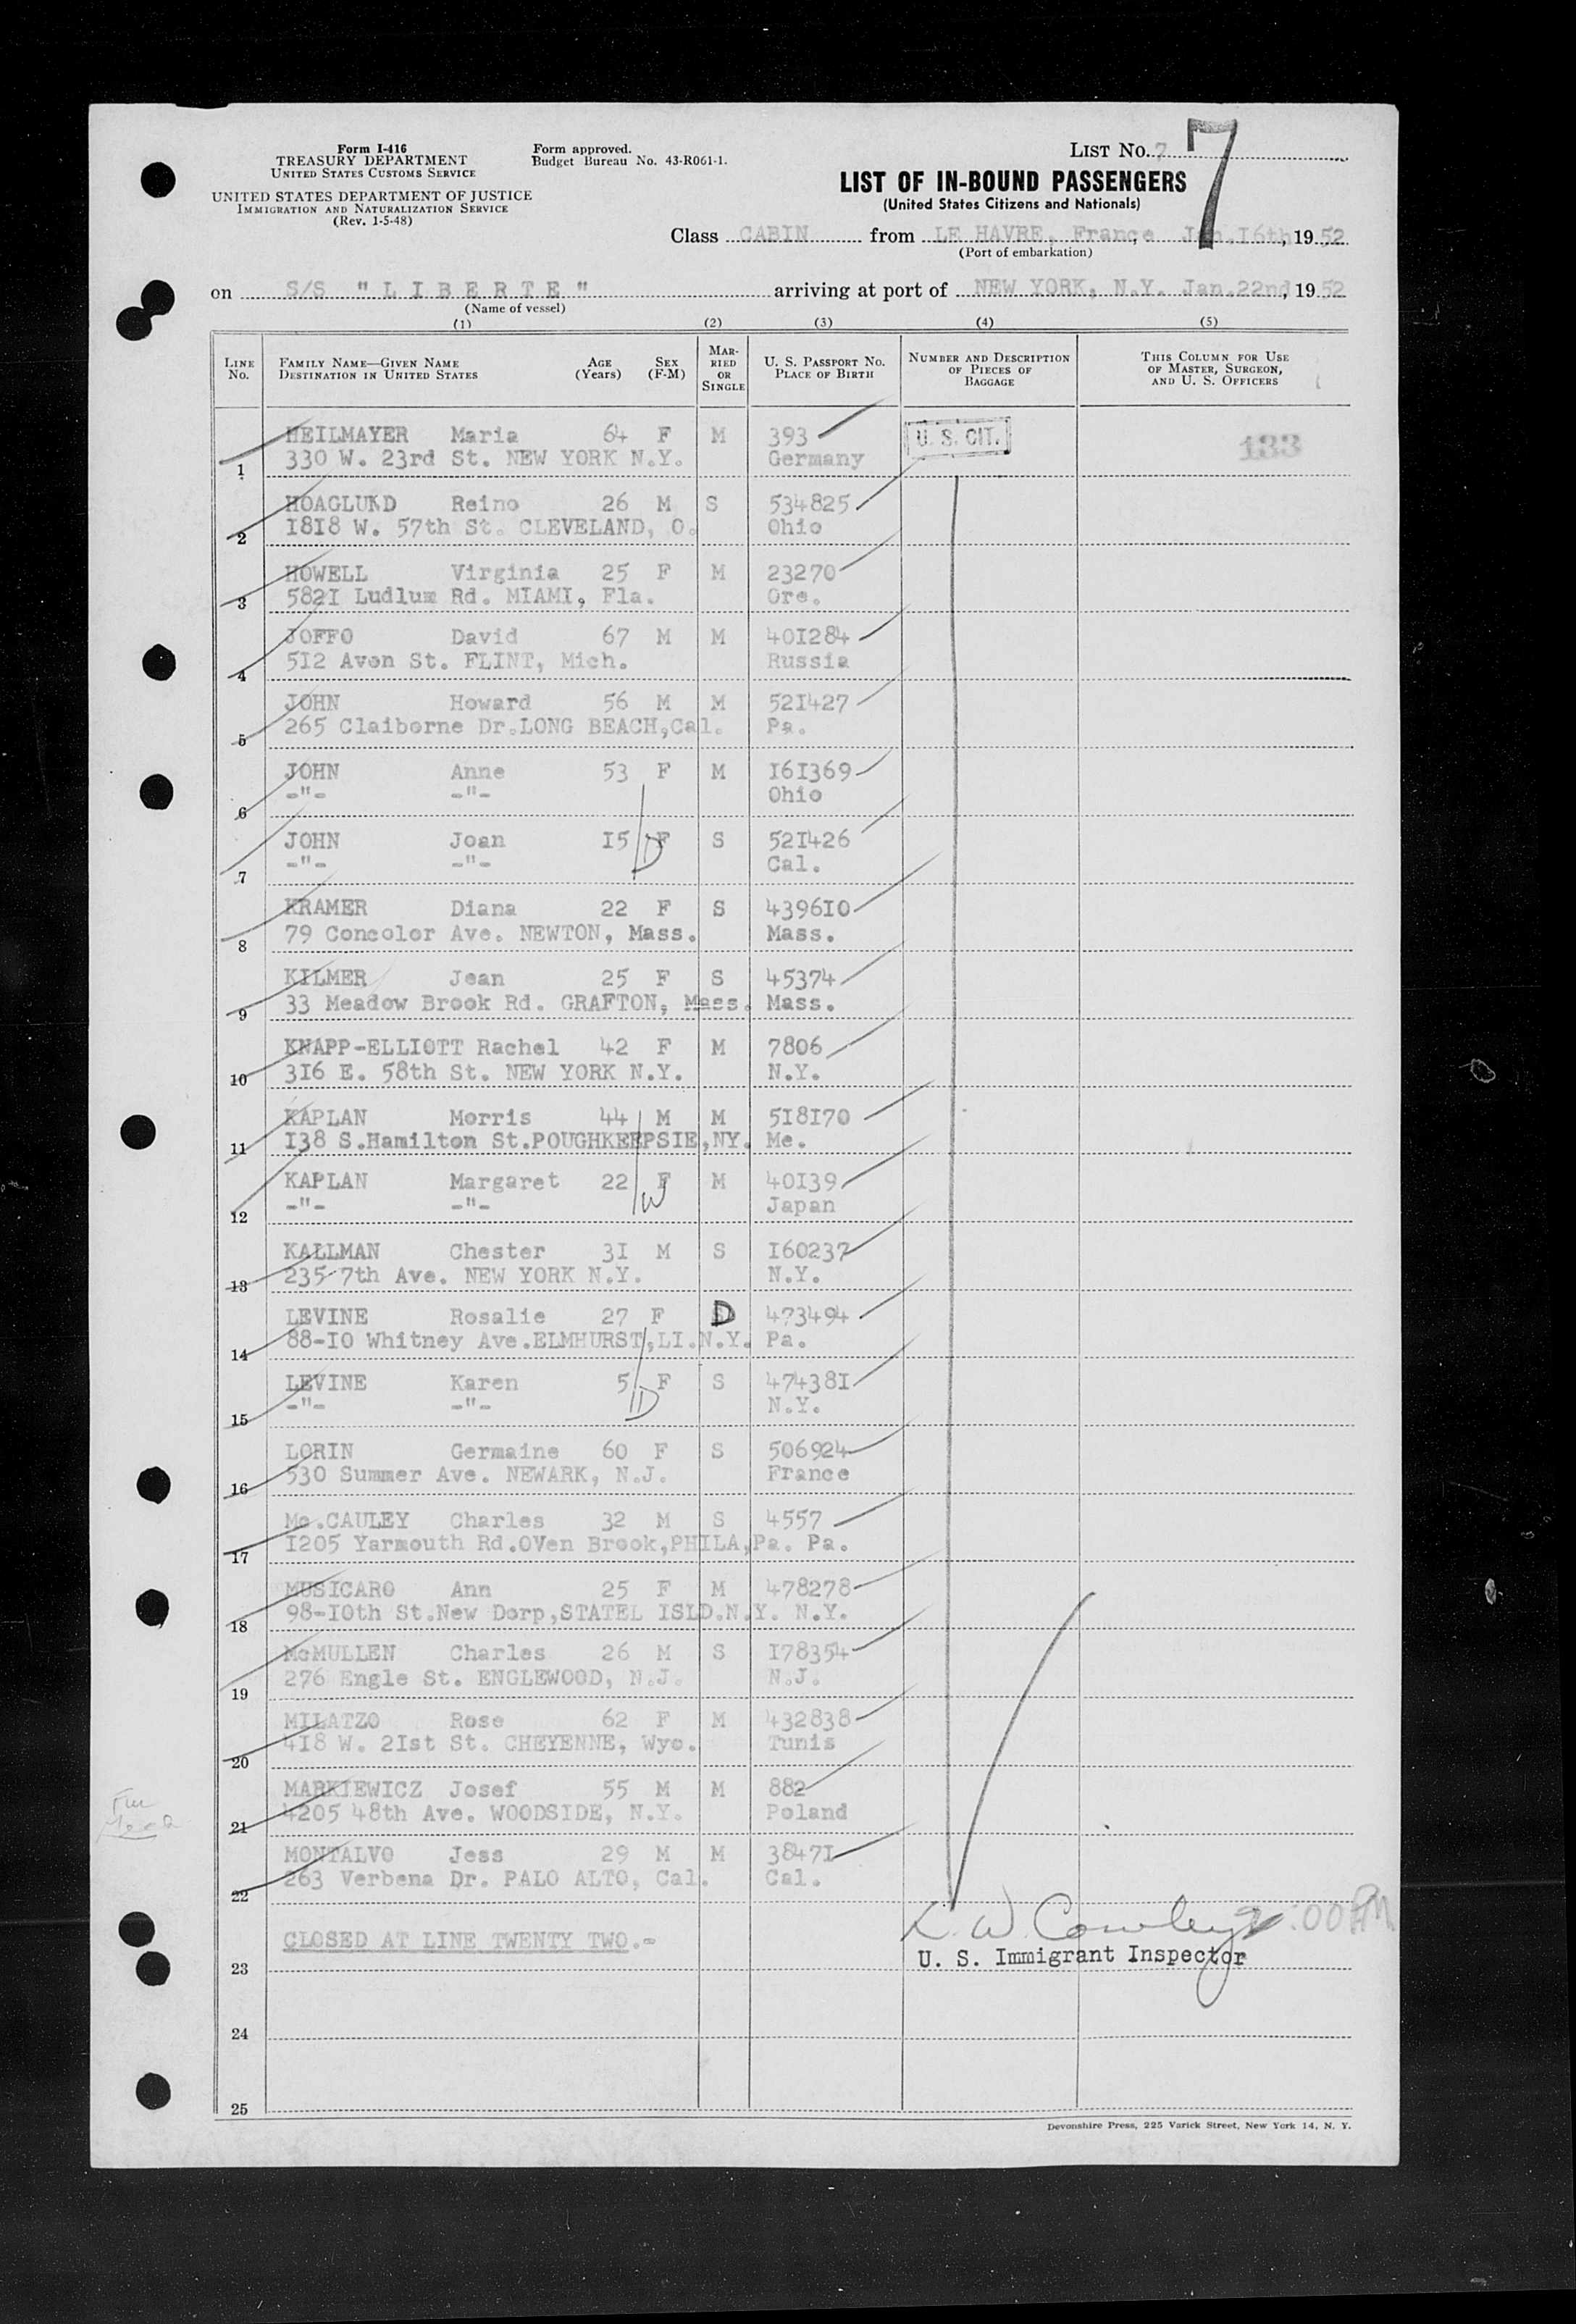 Form I-416
TREASURY DEPARTMENT
UNITED STATES CUSTOMS SERVICE
UNITED STATES DEPARTMENT OF JUSTICE
IMMIGRATION AND NATURALIZATION SERVICE
(Rev. 1-5-48)
Form approved.
Budget Bureau No. 43-R061-1.
LIST No. 7
7
LIST OF IN-BOUND PASSENGERS
(United States Citizens and Nationals)
Class CABIN from LE HAVRE, France, Jan.16th, 1952
(Port of embarkation)
on S/S "LIBERTE" arriving at port of NEW YORK, N.Y. Jan.22nd, 1952
(Name of vessel)
(1) (2) (3) (4) (5)
LINE No. FAMILY NAME—GIVEN NAME DESTINATION IN UNITED STATES AGE (Years) SEX (F-M) MARRIED OR SINGLE U. S. PASSPORT No. PLACE OF BIRTH NUMBER AND DESCRIPTION OF PIECES OF BAGGAGE THIS COLUMN FOR USE OF MASTER, SURGEON, AND U. S. OFFICERS
HEILMAYER Maria 64 F M 393 U. S. CIT. 133
1 330 W. 23rd St. NEW YORK N.Y. Germany
HOAGLUND Reino 26 M S 534825
2 1818 W. 57th St. CLEVELAND, O. Ohio
HOWELL Virginia 25 F M 23270
3 5821 Ludlum Rd. MIAMI, Fla. Ore.
JOFFO David 67 M M 401284
4 512 Avon St. FLINT, Mich. Russia
JOHN Howard 56 M M 521427
5 265 Claiborne Dr.LONG BEACH,Cal. Pa.
JOHN Anne 53 F M 161369
6 -"- -"- Ohio
JOHN Joan 15 F S 521426
D
7 -"- -"- Cal.
KRAMER Diana 22 F S 439610
8 79 Concolor Ave. NEWTON, Mass. Mass.
KILMER Jean 25 F S 45374
9 33 Meadow Brook Rd. GRAFTON, Mass. Mass.
KNAPP-ELLIOTT Rachel 42 F M 7806
10 316 E. 58th St. NEW YORK N.Y. N.Y.
KAPLAN Morris 44 M M 518170
11 138 S.Hamilton St.POUGHKEEPSIE,NY. Me.
KAPLAN Margaret 22 F M 40139
W
12 -"- -"- Japan
KALLMAN Chester 31 M S 160237
13 235-7th Ave. NEW YORK N.Y. N.Y.
LEVINE Rosalie 27 F D 473494
14 88-10 Whitney Ave.ELMHURST,LI.N.Y. Pa.
LEVINE Karen 5 F S 474381
D
15 -"- -"- N.Y.
LORIN Germaine 60 F S 506924
16 530 Summer Ave. NEWARK, N.J. France
Mc.CAULEY Charles 32 M S 4557
17 1205 Yarmouth Rd.OVen Brook,PHILA,Pa. Pa.
MUSICARO Ann 25 F M 478278
18 98-10th St.New Dorp,STATEL ISLD.N.Y. N.Y.
McMULLEN Charles 26 M S 178354
19 276 Engle St. ENGLEWOOD, N.J. N.J.
MILATZO Rose 62 F M 432838
20 418 W. 21st St. CHEYENNE, Wyo. Tunis
MARKIEWICZ Josef 55 M M 882
21 4205 48th Ave. WOODSIDE, N.Y. Poland
MONTALVO Jess 29 M M 38471
22 263 Verbena Dr. PALO ALTO, Cal. Cal.
CLOSED AT LINE TWENTY TWO.-
:00 PM
U. S. Immigrant Inspector
23
24
25
Devonshire Press, 225 Varick Street, New York 14, N. Y.